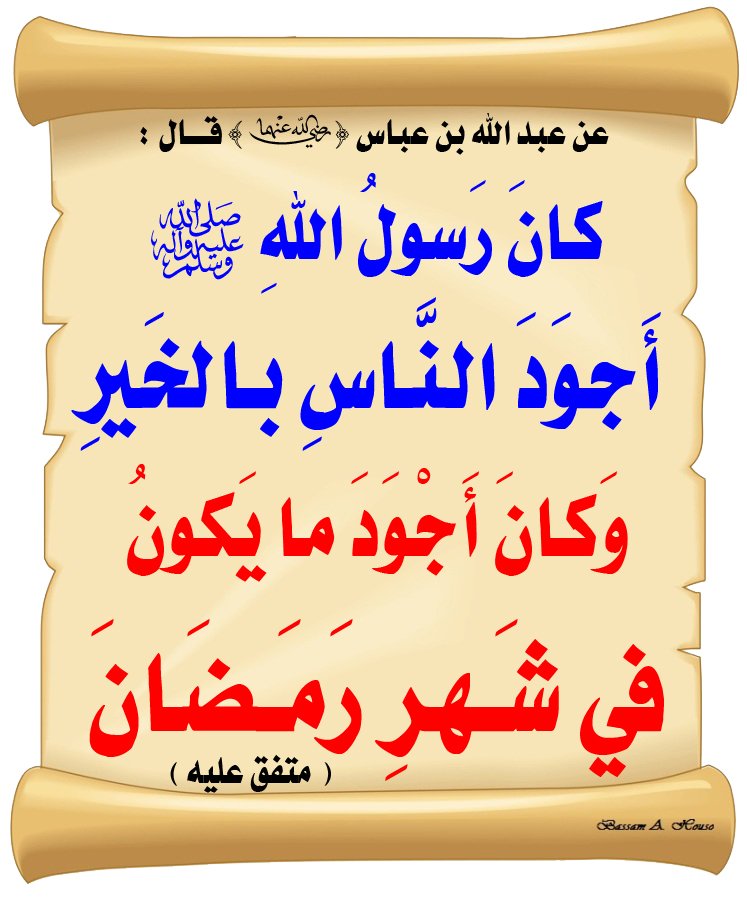 عن عبد الله بن عباس ﴿ رضي الله عنهما ﴾ قـــال :
كانَ رَسولُ اللهِ صلى الله عليه وآله وسلم
أَجوَدَ النَّـاسِ بـالخَيرِ
وَكانَ أَجْوَدَ ما يَكونُ
في شَـهرِ رَمَـضَانَ
( متفق عليه )
Bassam A. Houso